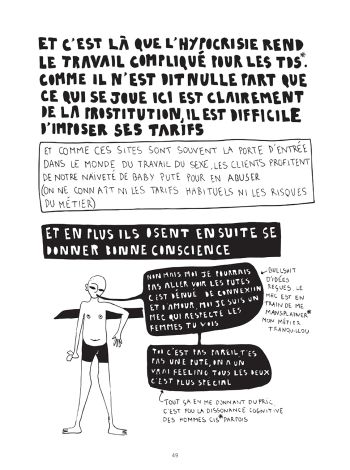 ET C'EST LÀ QUE L'HYPOCRISIE REND
LE TRAVAIL COMPLIQUÉ POUR LES TDS*.
COMME IL N'EST DIT NULLE PART QUE
CE QUI SE JOUE ICI EST CLAIREMENT
DE LA PROSTITUTION, IL EST DIFFICILE
D'IMPOSER SES TARIFS
ET COMME CES SITES SONT SOUVENT LA PORTE D'ENTRÉE
DANS LE MONDE DU TRAVAIL DU SEXE, LES CLIENTS PROFITENT
DE NOTRE NAÏVETÉ DE BABY PUTE POUR EN ABUSER
(ON NE CONNAÎT NI LES TARIFS HABITUELS NI LES RISQUES
DU MÉTIER)
ET EN PLUS ILS OSENT ENSUITE SE
DONNER BONNE CONSCIENCE
NON MAIS MOI JE POURRAIS
PAS ALLER VOIR LES PUTES
C'EST DÉNUÉ DE CONNEXION
ET D'AMOUR. MOI JE SUIS UN
MEC QUI RESPECTE LES
FEMMES TU VOIS
BULLSHIT
D'IDÉES
REÇUES. LE
MEC EST EN
TRAIN DE ME
MANSPLAINER*
MON MÉTIER
TRANQUILLOU
TOI C'EST PAS PAREIL T'ES
PAS UNE PUTE, ON A UN
VRAI FEELING TOUS LES DEUX
C'EST PLUS SPECIAL
TOUT ÇA EN ME DONNANT DU FRIC.
C'EST FOU LA DISSONANCE COGNITIVE
DES HOMMES CIS* PARFOIS
49